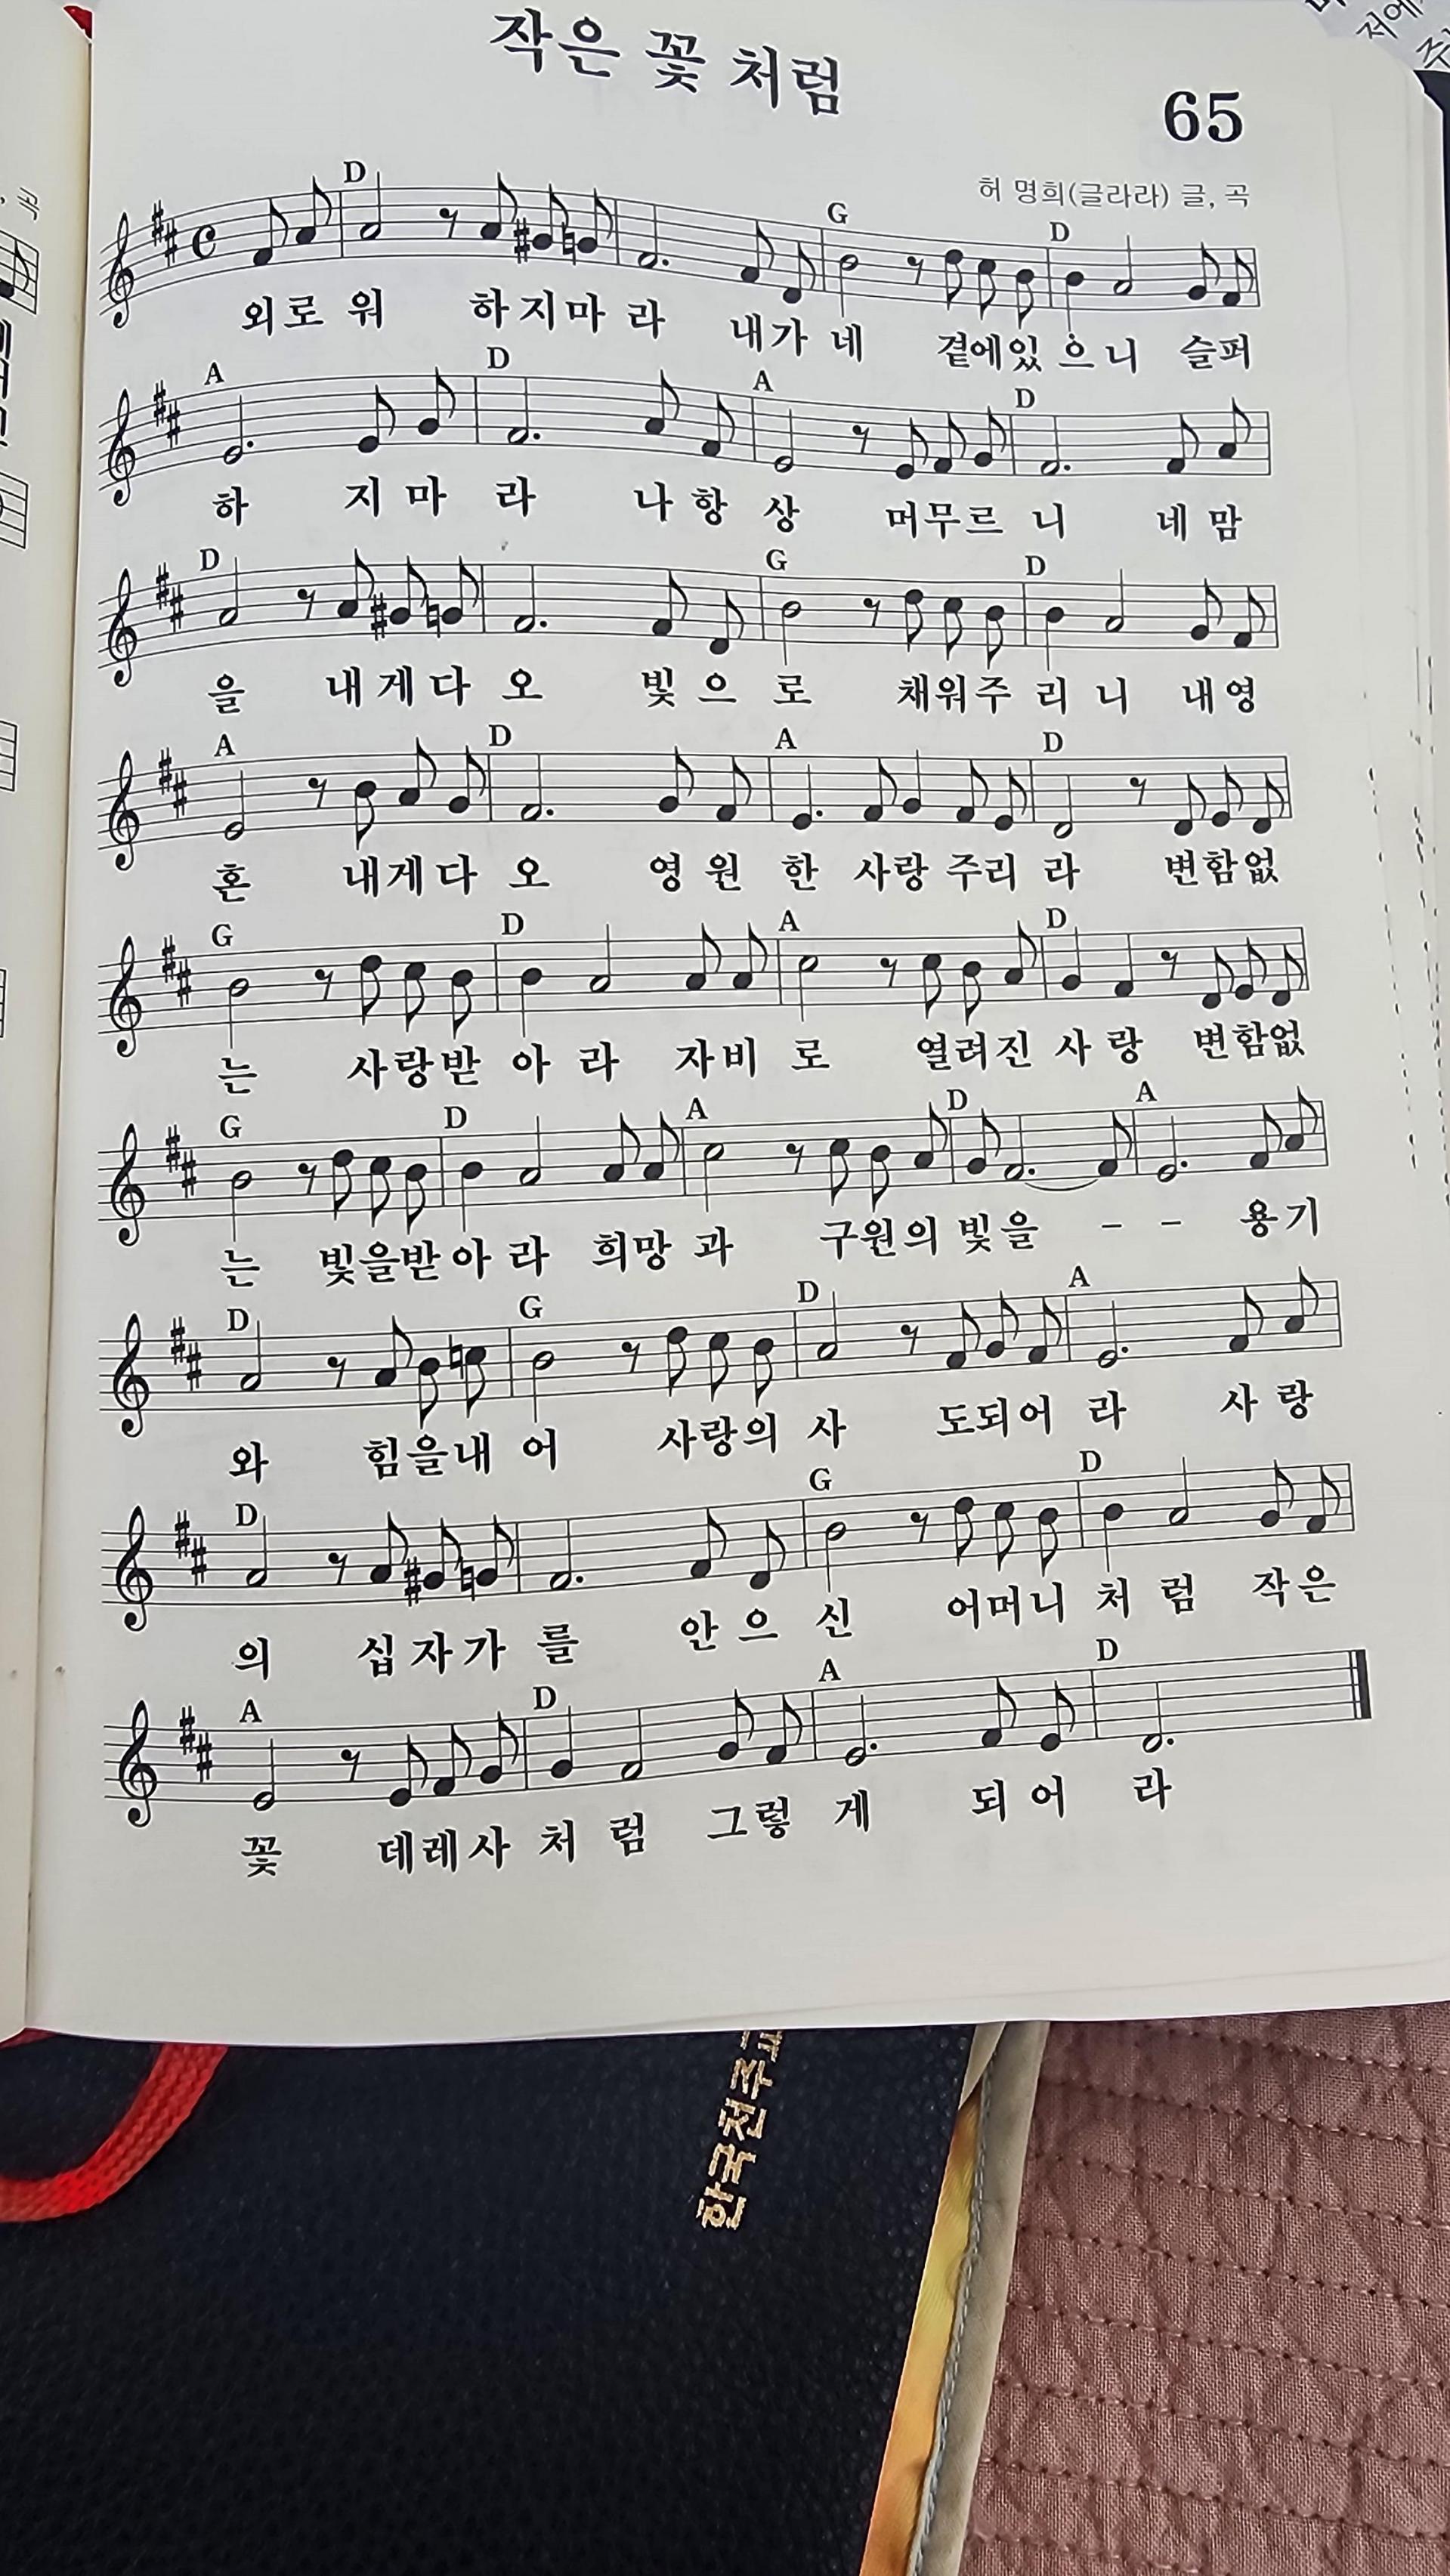 작은 꽃 처럼
65
허 명희(글라라) 글, 곡
D G D
외로 워 하지마 라 내가 네 곁에있 으니 슬퍼
A D A D
하 지 마 라 나 항 상 머무르 니 네 맘
D G D
을 내게다 오 빛 으 로 채워주 리 니 내영
A D A D
혼 내게다 오 영 원 한 사랑 주리 라 변함없
G D A D
는 사랑받 아 라 자비 로 열려진 사 랑 변함없
G D A D A
는 빛을받아 라 희망 과 구원의 빛을 - - 용기
D G D A
와 힘을내 어 사랑의 사 도되어 라 사 랑
D G D
의 십자가 를 안 으 신 어머니 처 럼 작은
A D A D
꽃 데레사 처 럼 그렇 게 되 어 라
한국천주교
곡
저에